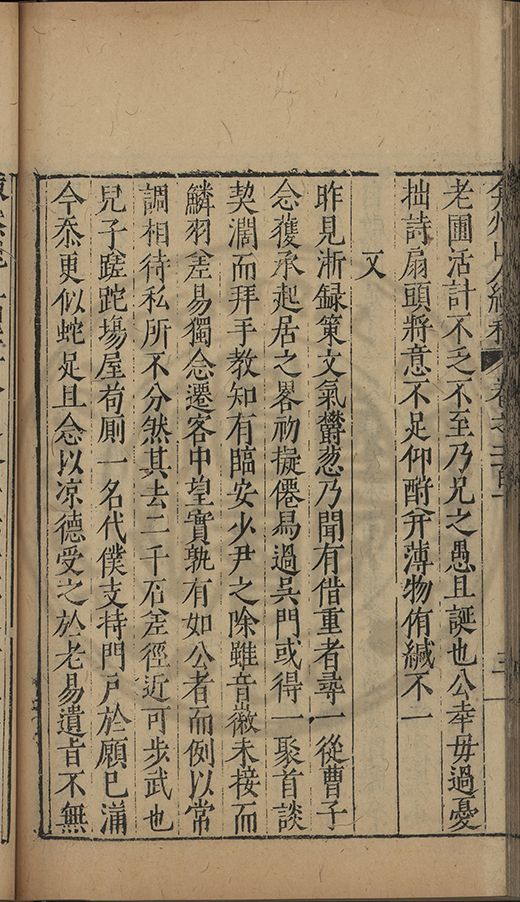 弇州山人續稿 卷之二百一 三
老圃活計不乏不至乃兄之愚且誕也公幸毋過憂
拙詩扇頭將意不足仰酧弁薄物侑緘不一
又
昨見浙録策文氣欎葱乃聞有借重者尋一從曹子
念獲承起居之畧初擬僊舄過吳門或得一聚首談
契濶而拜手教知有臨安少尹之除雖音徽未接而
鱗羽差易獨念遷客中望實孰有如公者而例以常
調相待私所不分然其去二千石差徑近可步武也
兒子蹉跎塲屋茍厠一名代僕支持門戶於願已滿
今忝更似蛇足且念以凉德受之於老易遺旨不無